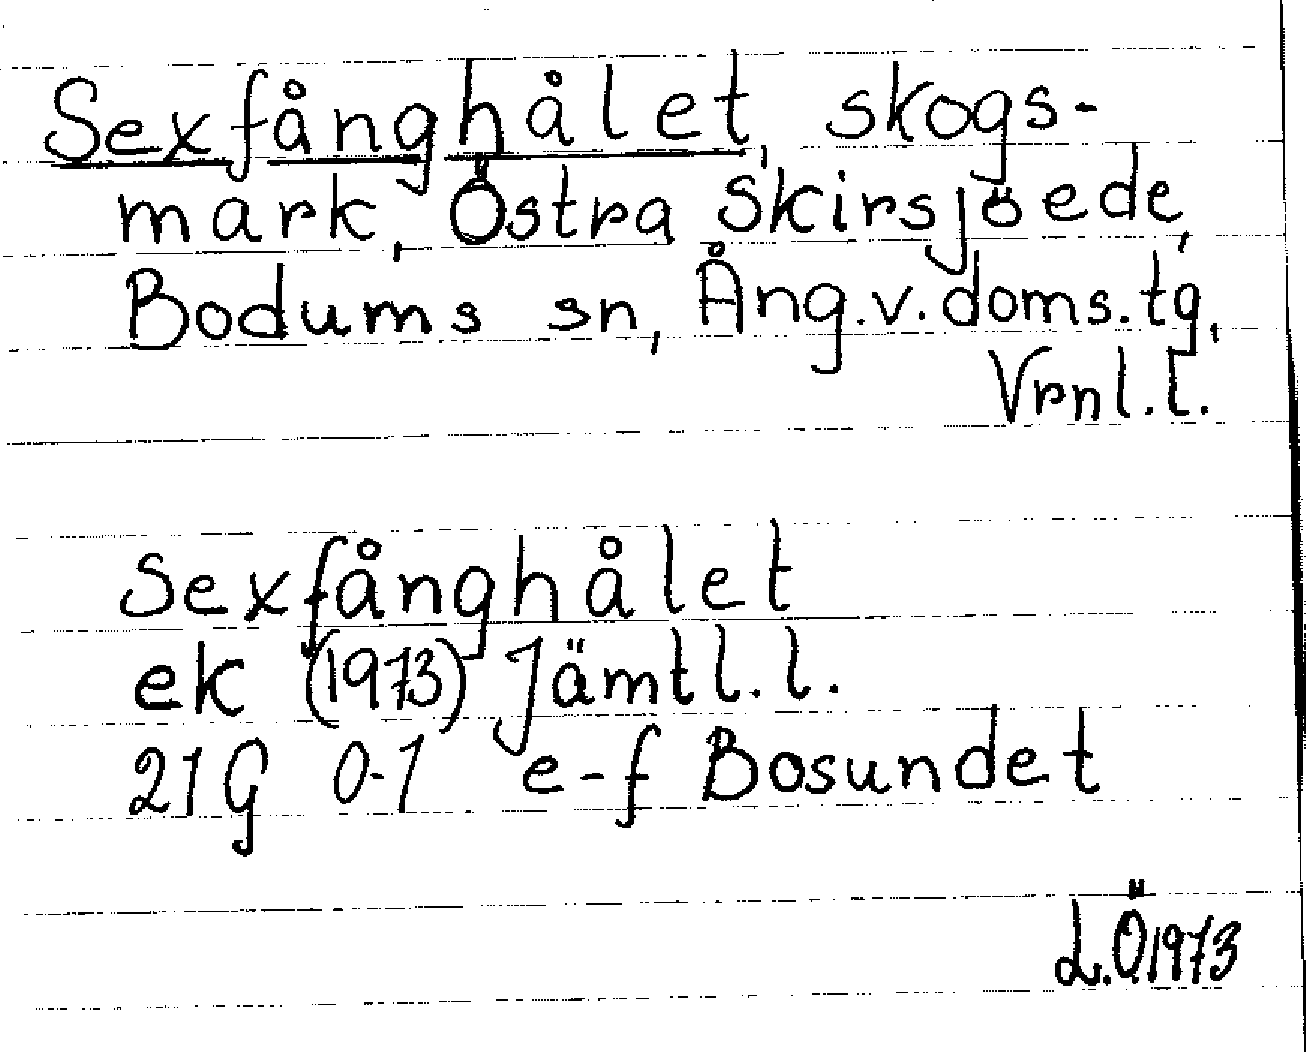 Sexfånghålet, skogs-
mark, Östra Skirsjöede,
Bodums sn, Ång.v.doms.tg,
Vrnl.l.
Sexfånghålet
ek (1973) Jämtl.l.
21G 0-1 e-f Bosundet
L.Ö.1973